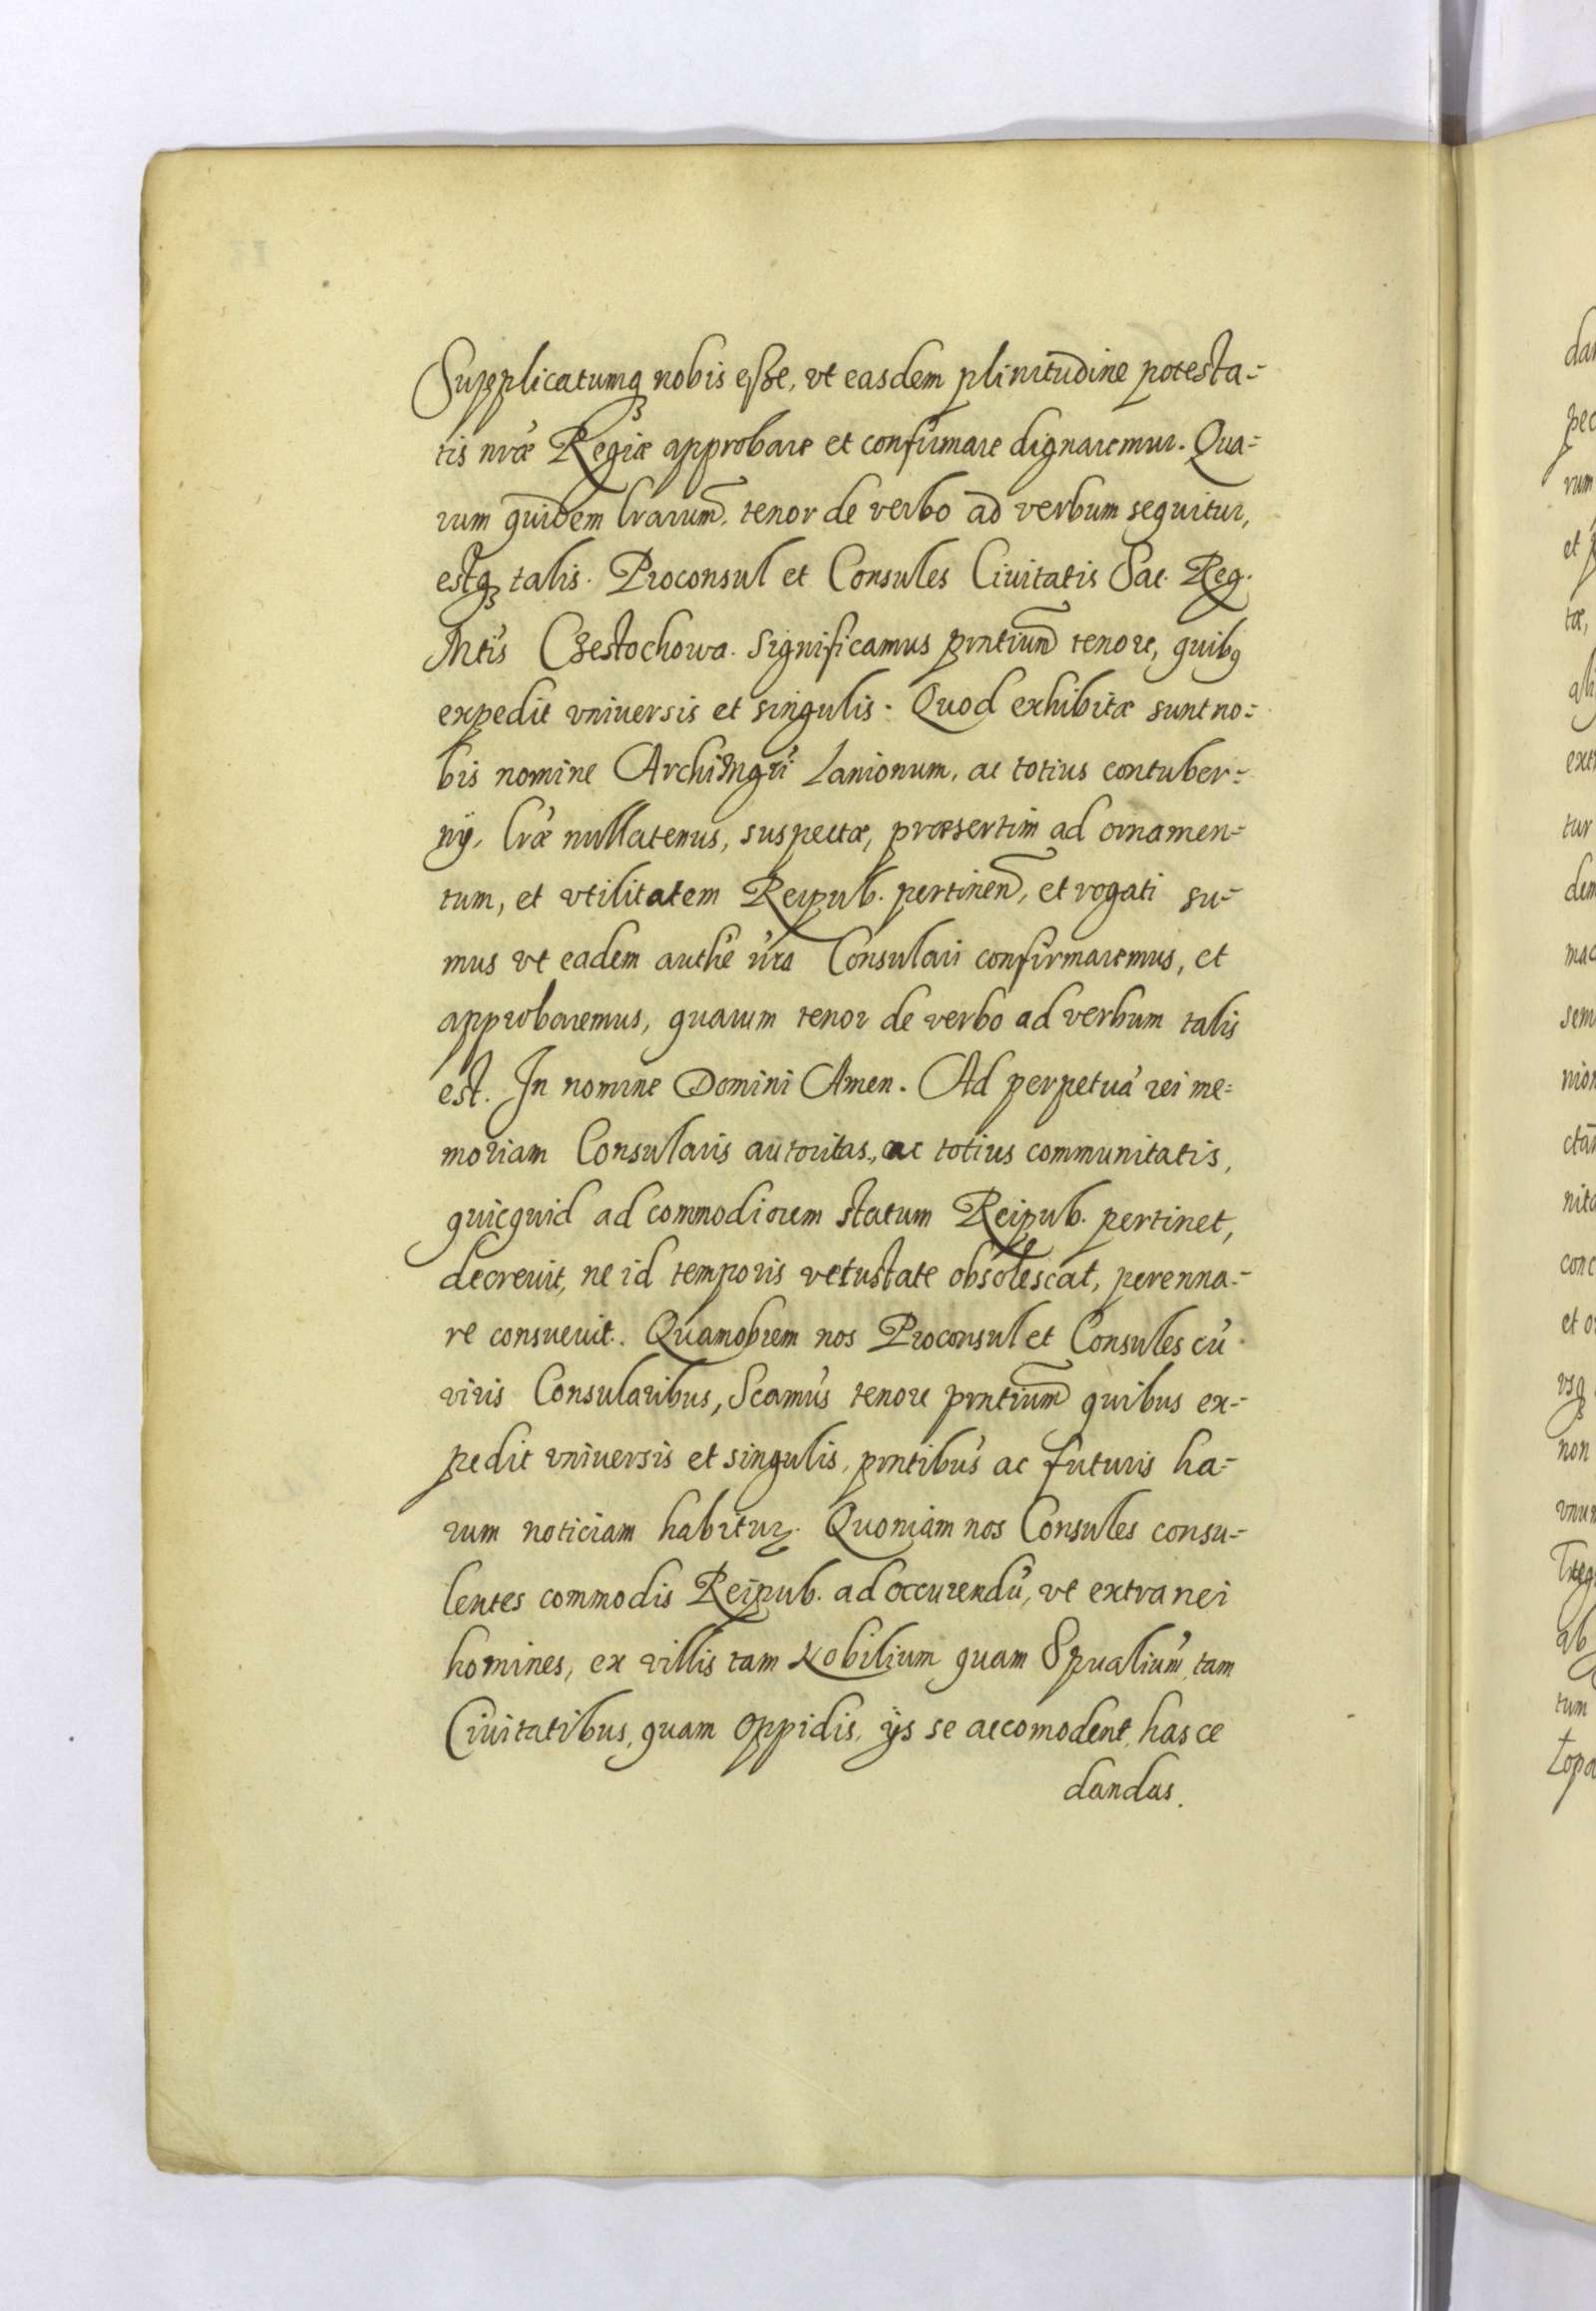 Supplicatumq₃ nobis eſse, vt easdem plinitudine potesta=
tis nræ Regiæ approbare et confirmare dignaremur. Qua=
rum quidem lrarum, tenor de verbo ad verbum sequitur,
estq₃ talis. Proconsul et Consules Ciuitatis Sac. Reg.
Mtis Czestochowa. Significamus pntium tenore, quibꝯ
expedit vniuersis et singulis. Quod exhibitæ sunt no=
bis nomine ArchiMgri Lanionum, ac totius contuber=
nij, lræ nullatenus, suspectæ, præsertim ad ornamen=
tum, et vtilitatem Reipub. pertinen, et rogati su=
mus vt eadem authe nra Consulari confirmaremus, et
approbaremus, quarum tenor de verbo ad verbum talis
est. In nomine Domini Amen. Ad perpetuā rei me=
moriam Consularis autoritas, ac totius communitatis,
quicquid ad commodiorem statum Reipub. pertinet,
decreuit, ne id temporis vetustate obsolescat, perenna=
re consueuit. Quamobrem nos Proconsul et Consules cū
viris Consularibus, Scamus tenore pntium quibus ex=
pedit vniuersis et singulis, pntibus ac futuris ha=
rum noticiam habituꝝ. Quoniam nos Consules consu=
lentes commodis Reipub. ad occurendū, vt extranei
homines, ex villis tam Nobilium quam Spualium, tam
Ciuitatibus, quam oppidis, ijs se accomodent, hasce
dandas.